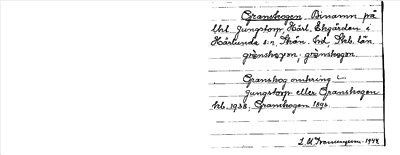 Granskogen. Binamn på
Uvl. Ljungstorp, Härl. Ekgården i
Härlunda sn, Skån. hd, Skb. län.
grànskogən, grènskogen.
Granskog omkring
Ljungstorp eller Granskogen
kb. 1938, Granskogen 1890
1944